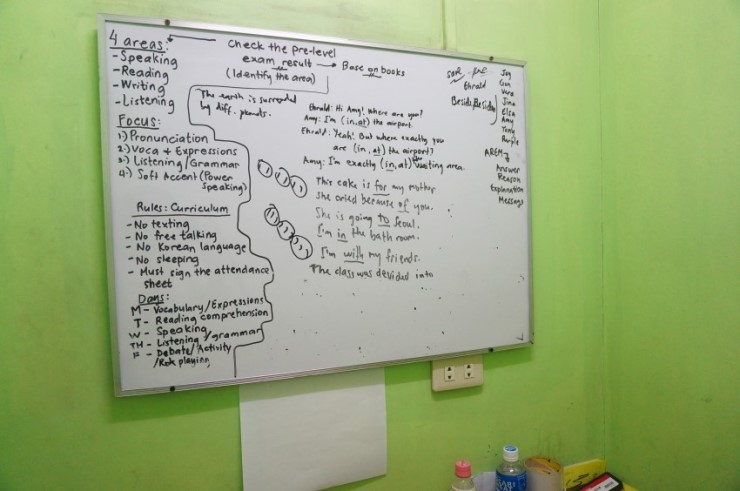 4 areas:
- Speaking
- Reading
- Writing
- Listening
check the pre-level
exam result → Base on books
(Identify the area)
Focus:
1.) Pronunciation
2.) Voca + Expressions
3.) Listening/Grammar
4.) Soft Accent (Power
Speaking)
Rules: Curriculum
- No texting
- No free talking
- No Korean language
- No sleeping
- Must sign the attendance
sheet
Days:
M - Vocabulary/Expressions
T - Reading comprehension
W - Speaking
TH - Listening/grammar
F - Debate/Activity
/Role playing
The earth is surrounded
by diff.
Ehrald: Hi Amy! Where are you?
Amy: I'm (in, at) the airport.
Ehrald: Yeah! But where exactly you
are (in, at) the airport?
Amy: I'm exactly (in, at) the waiting area.
This cake is for my mother.
She cried because of you.
She is going to Seoul.
I'm in the bath room.
I'm with my friends.
The class was devided into
Ehrald
Beside/Besides
Joy
Gun
Vera
Jina
Elsa
Amy
Tony
Purple
AREM
Answer
Reason
Explanation
Message